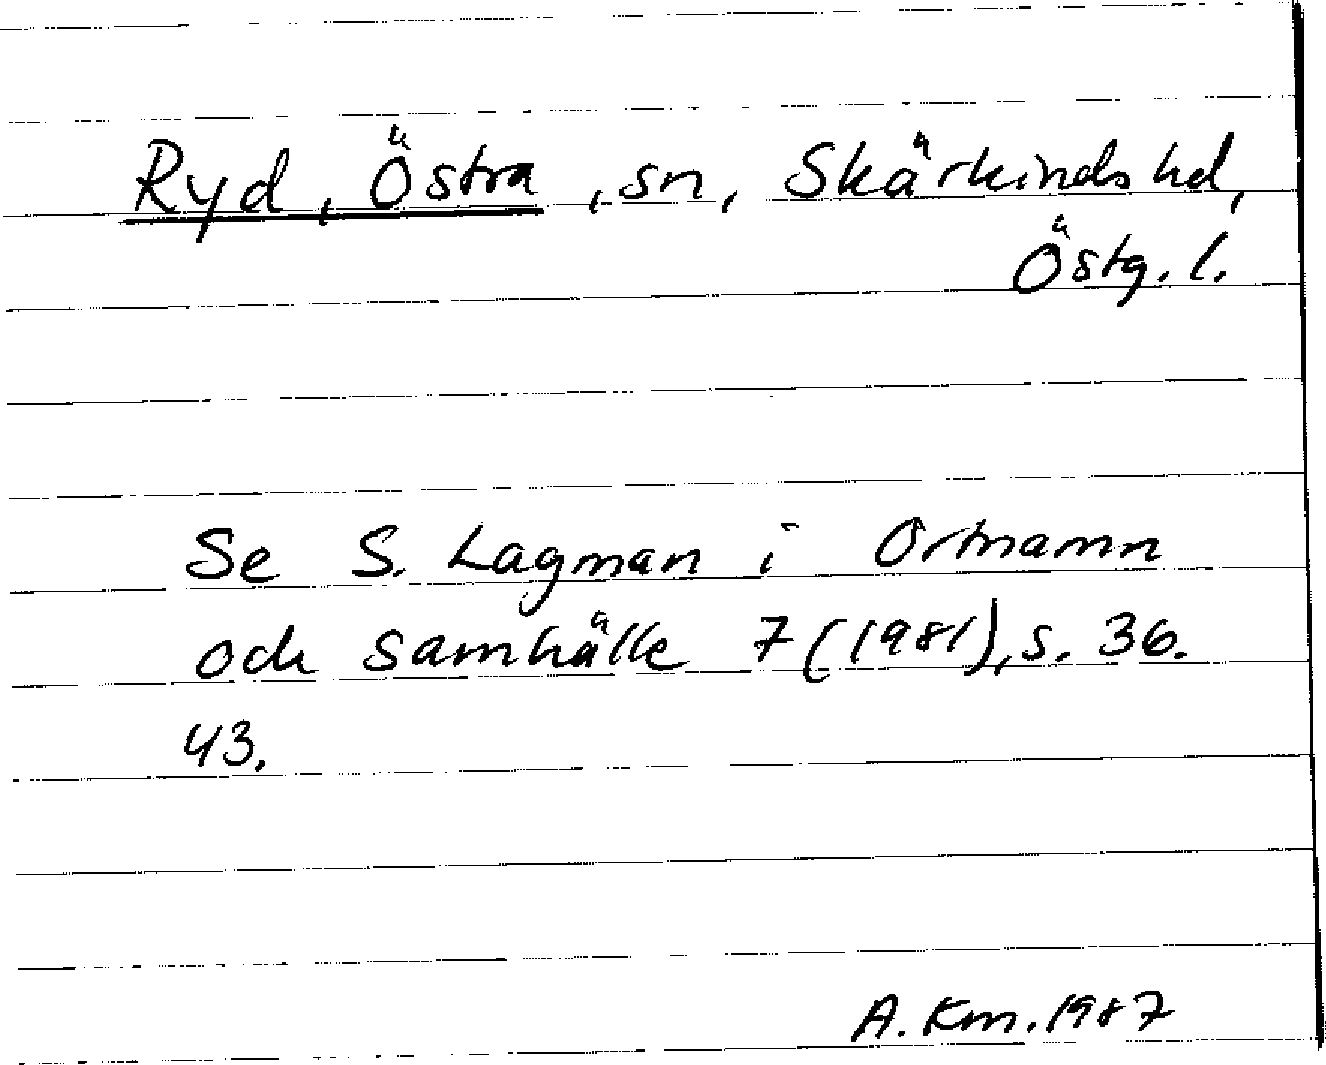 Ryd, Östra, sn, Skärkinds hd,
Östg. l.
Se S. Lagman i Ortnamn
och samhälle 7 (1981), s. 36.
43.
A. Km. 1987